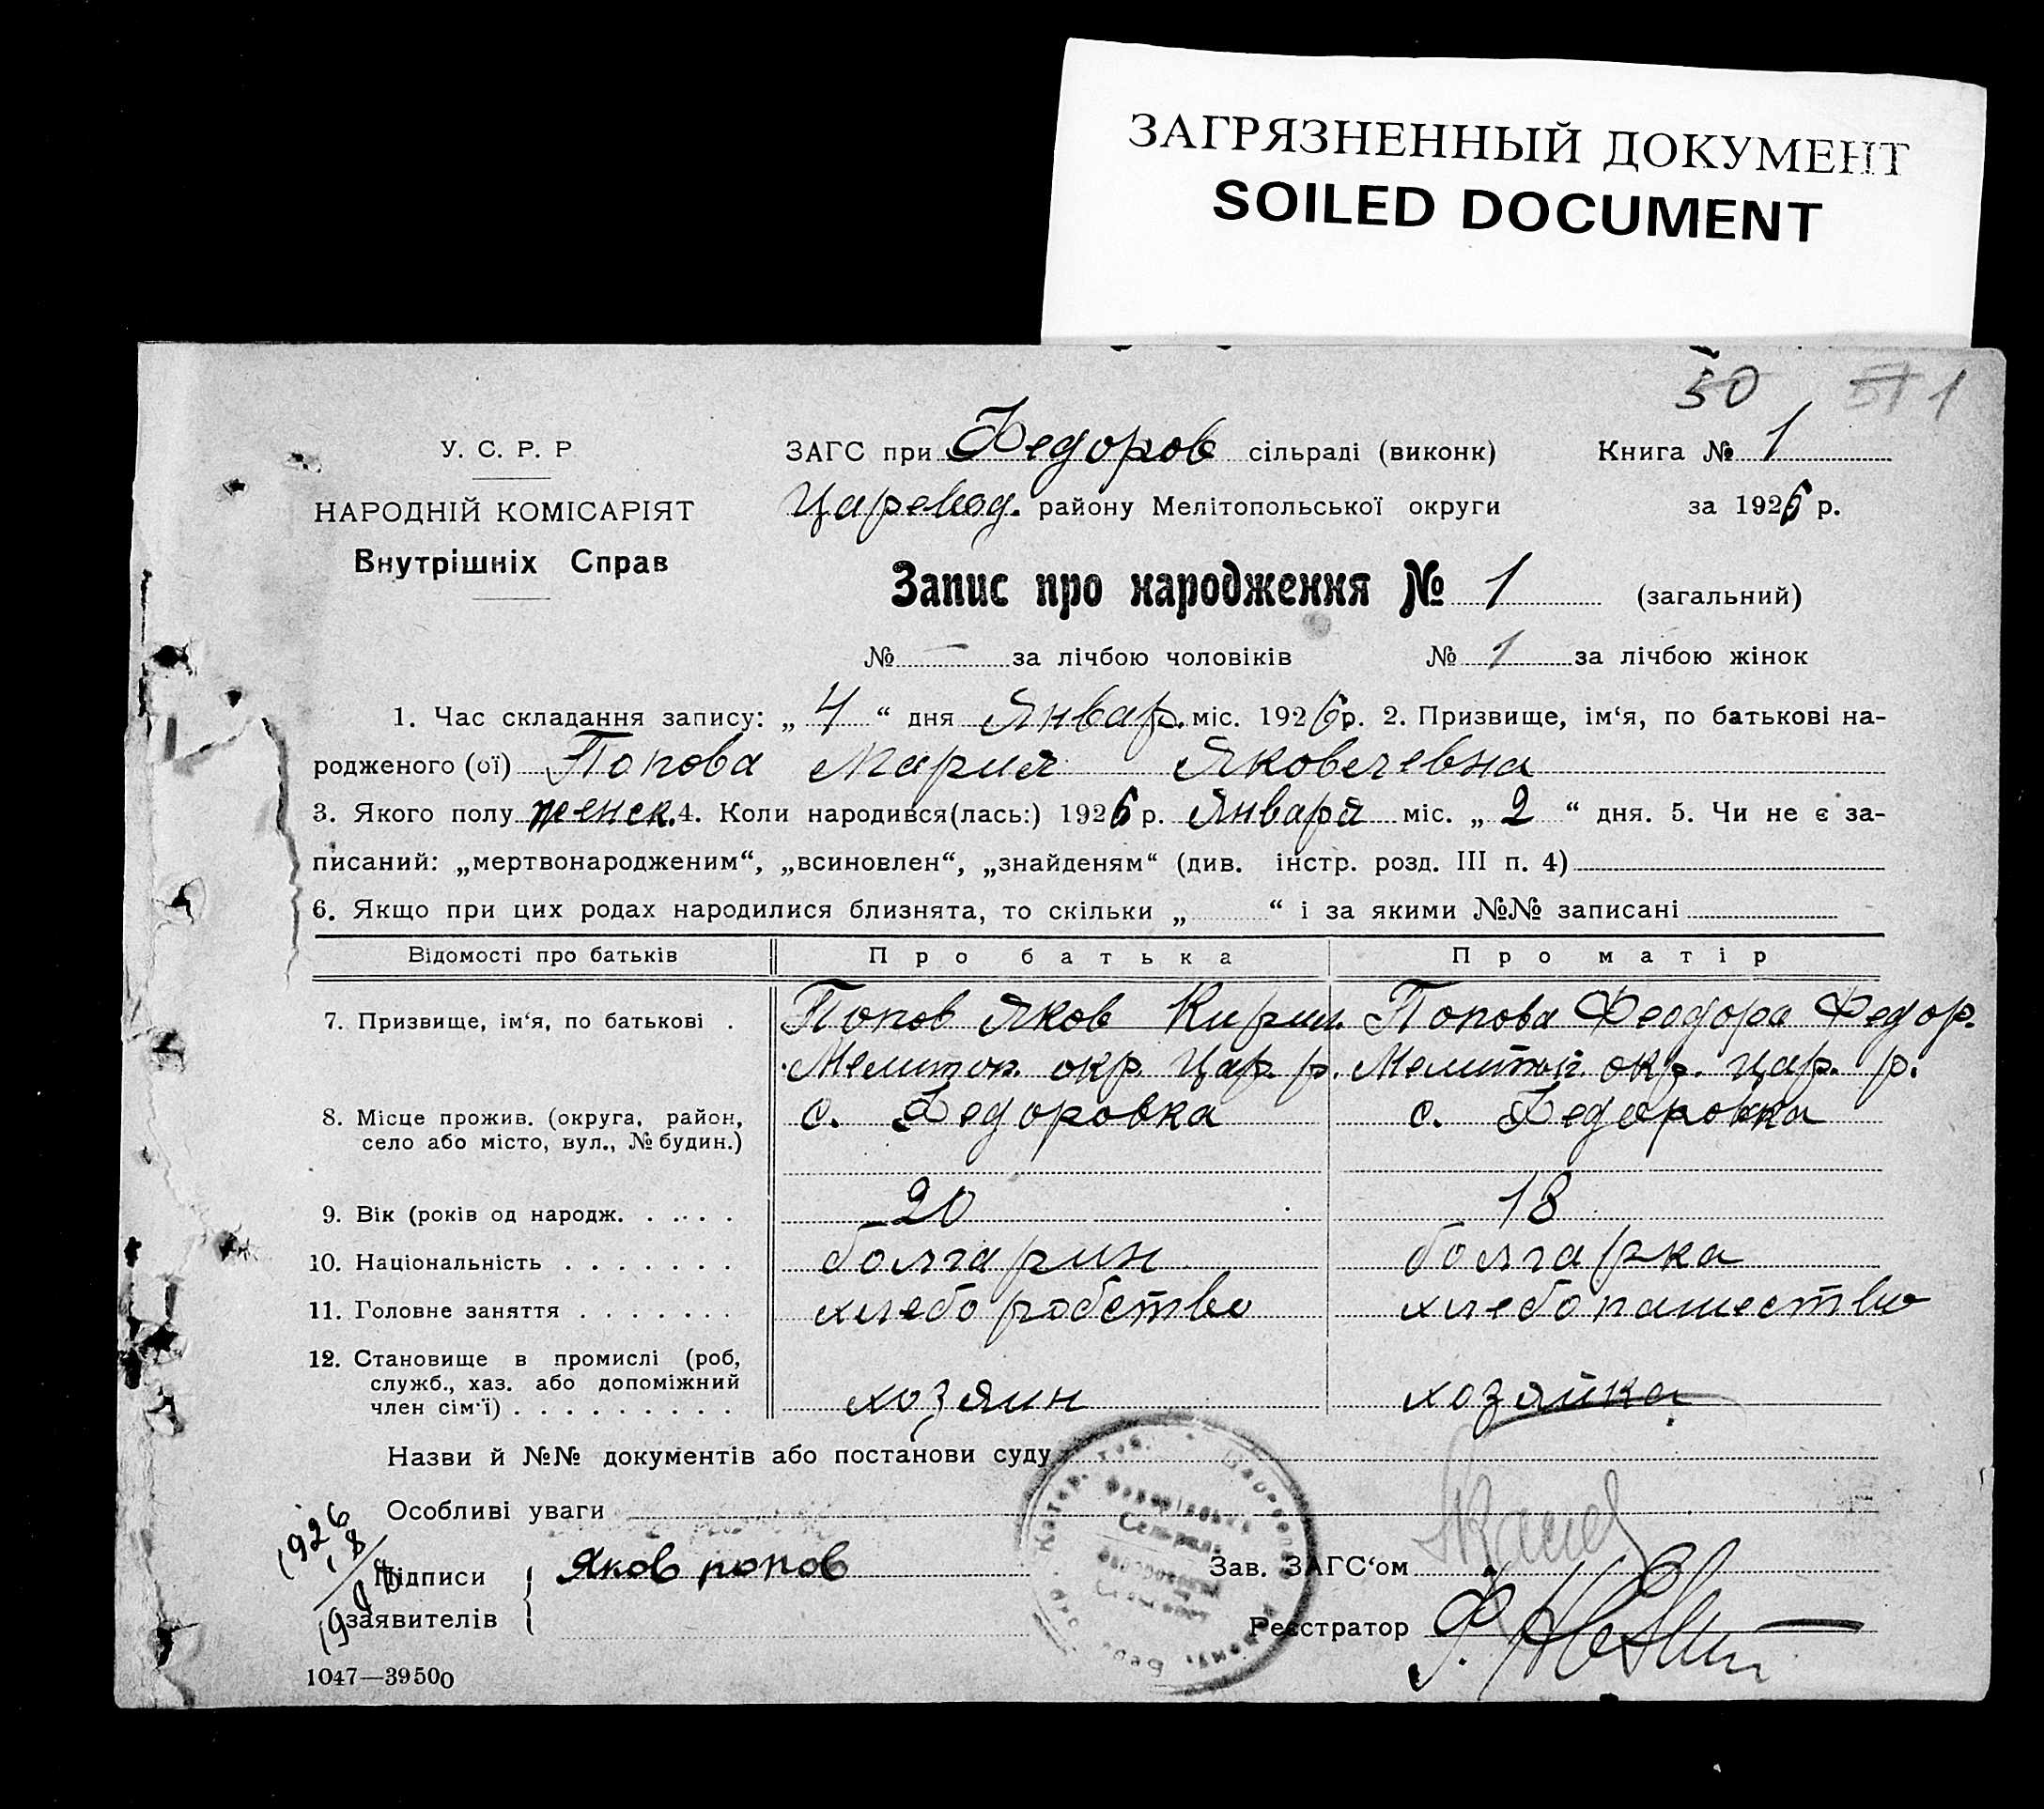 ЗАГРЯЗНЕННЫЙ ДОКУМЕНТ
SOILED DOCUMENT
50 51 1
У. С. Р. Р
НАРОДНІЙ КОМІСАРІЯТ
Внутрішніх Справ
ЗАГС при Федоров сільраді (виконк) Книга № 1
Царевод. району Мелітопольської округи за 1926 р.
Запис про народження № 1 (загальний)
№ — за лічбою чоловіків № 1 за лічбою жінок
1. Час складання запису: „ 4 “ дня Январ. міс. 1926р. 2. Призвище, ім‘я, по батькові на-
родженого (ої) Попова Мария Яковлевна
3. Якого полу женск. 4. Коли народився(лась:) 1926 р. Января міс. „ 2 “ дня. 5. Чи не є за-
писаний: „мертвонародженим“, „всиновлен“, „знайденям“ (див. інстр. розд. III п. 4)
6. Якщо при цих родах народилися близнята, то скільки „ “ і за якими №№ записані
Відомості про батьків Про батька Про матір
7. Призвище, ім‘я, по батькові . Попов Яков Кирил. Попова Феодора Федор.
Мелитоп. окр. Цар. р. Мелитоп. окр. Цар. р.
8. Місце прожив. (округа, район, с. Федоровка с. Федоровка
село або місто, вул., № будин.)
9. Вік (років од народж. . . . . . 20 18
10. Національність . . . . . . . болгарин болгарка
11. Головне заняття . . . . . . . хлеборобство хлебопашество
12. Становище в промислі (роб,
служб., хаз. або допоміжний
член сім‘ї) . . . . . . . . . хозяин хозяйка
Назви й №№ документів або постанови суду
Особливі уваги
1926
18
Підписи
заявителів
Яков попов
Зав. ЗАГС‘ом
Реєстратор
1047—39500